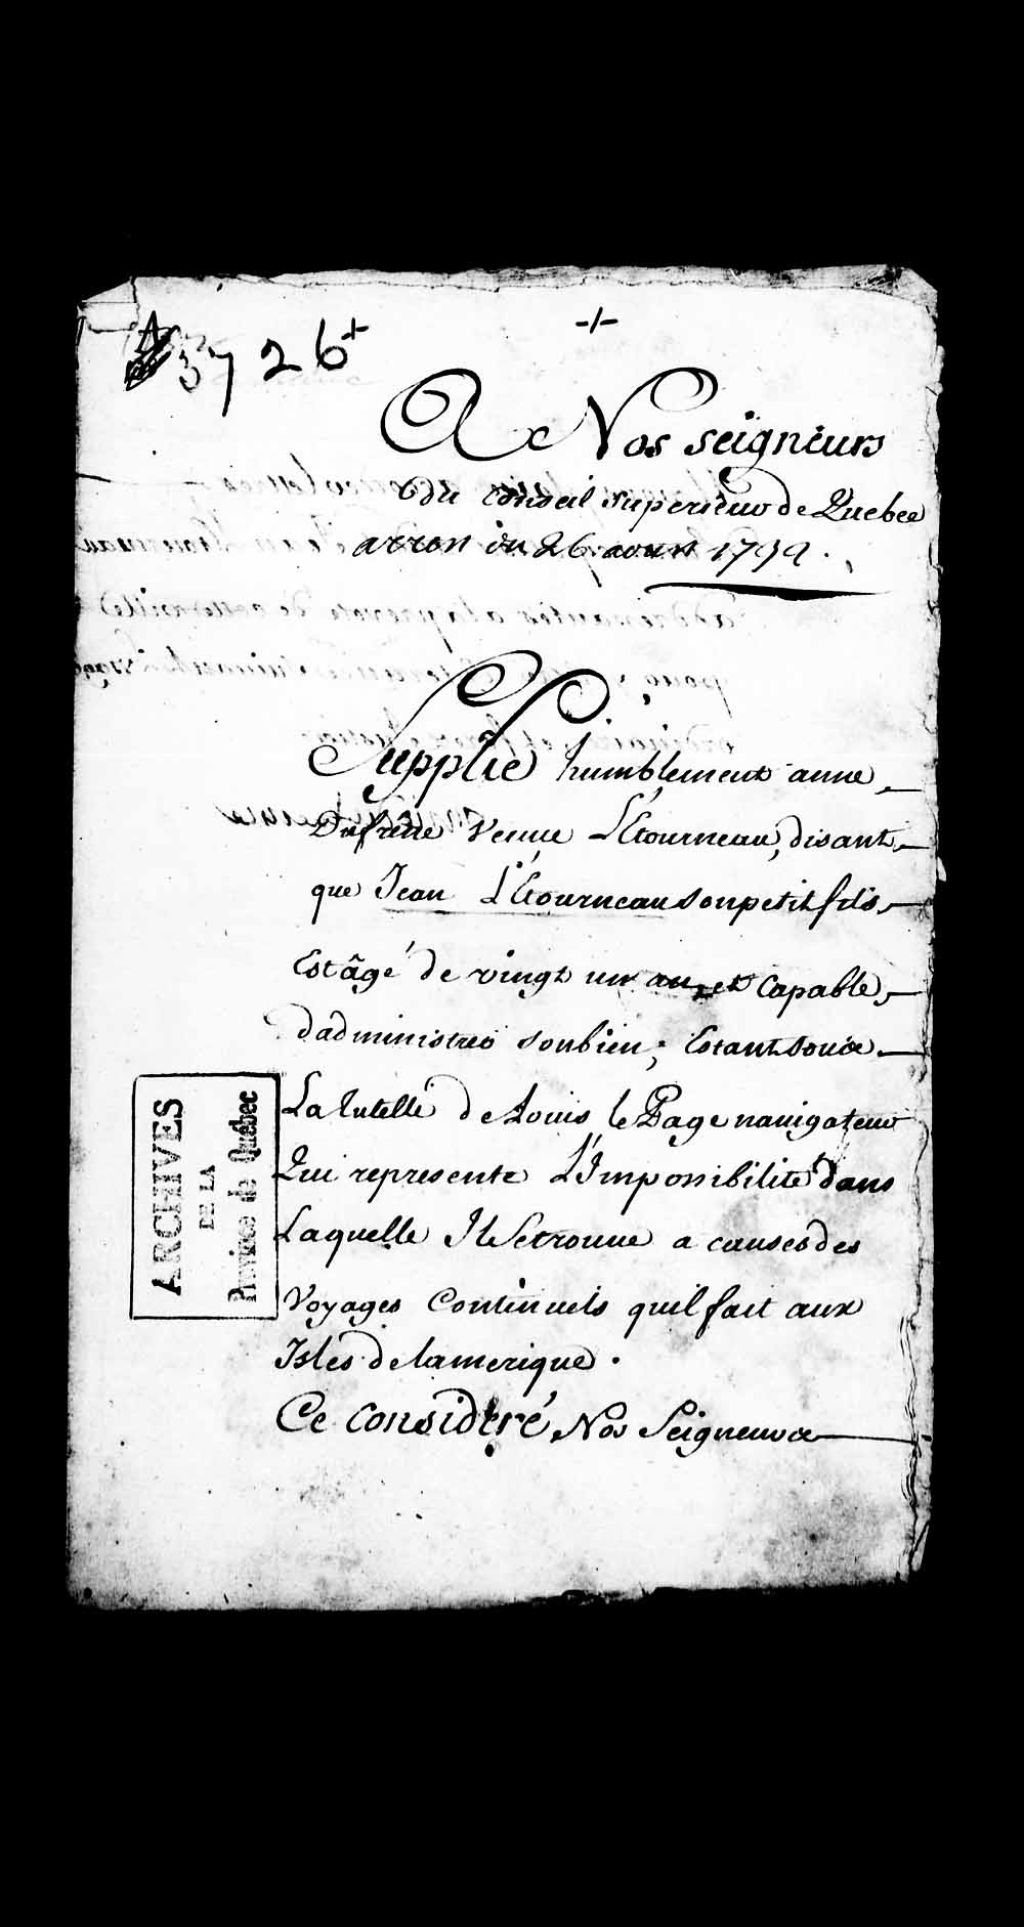 3726+
-/-
A Nos seigneurs
du Conseil Superieur de Quebec
du 26 aoust 1739.
Supplie humblement anne
Dufrene Veuue L'Etourneau, disant
que Jean L'Etourneau son petit fils
Est âgé de vingt un an et Capable
dadministrer son bien; Estant sous
La tutelle de Louis le Page nauigateur
Qui represente L'Impossibilité dans
Laquelle Il se trouue a causes des
Voyages Continuels quil fait aux
Isles de lamerique.
Ce consideré, Nos Seigneurs
ARCHIVES
DE LA
Province de Québec